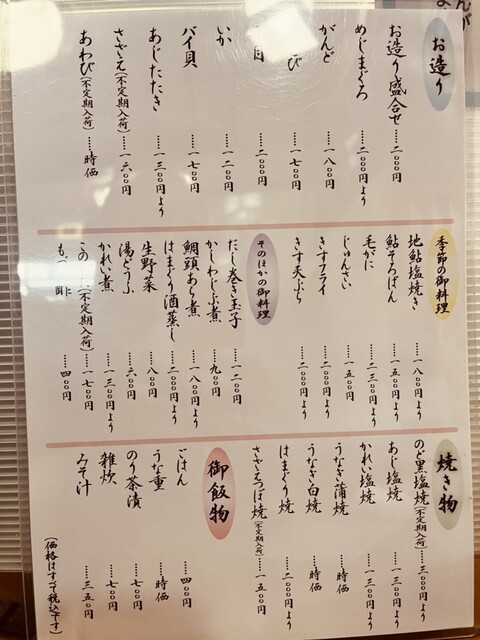 お造り
お造り盛合せ……二〇〇〇円
めじまぐろ……二〇〇〇円より
がんど……一八〇〇円
び……一七〇〇円
……二〇〇〇円
いか……一二〇〇円
バイ貝……一七〇〇円
あじたたき……一三〇〇円より
さざえ(不定期入荷)……一六〇〇円
あわび(不定期入荷)……時価
季節の御料理
地鮎塩焼き……一八〇〇円より
鮎そろばん……一五〇〇円より
毛がに……二三〇〇円より
じゅんさい……一五〇〇円
きすフライ
きす天ぷら……二〇〇〇円
そのほかの御料理
だし巻き玉子……一二〇〇円
かしわじぶ煮……九〇〇円
鯛頭あら煮……一八〇〇円より
はまぐり酒蒸し……二〇〇〇円より
生野菜……八〇〇円
湯どうふ……六〇〇円
かれい煮……一三〇〇円より
この(不定期入荷)……一七〇〇円
も……四〇〇円
焼き物
のど黒塩焼(不定期入荷)……三〇〇〇円より
あじ塩焼……一三〇〇円より
かれい塩焼……一三〇〇円より
うなぎ蒲焼……時価
うなぎ白焼……時価
はまぐり焼……二〇〇〇円より
さざえつぼ焼(不定期入荷)……一五〇〇円
御飯物
ごはん……四〇〇円
うな重……時価
のり茶漬……七〇〇円
雑炊……七〇〇円
みそ汁……三五〇円
(価格はすべて税込です)